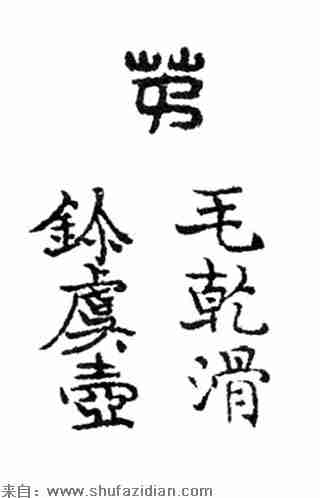 毛乾滑
鉩虞壺
来自：www.shufazidian.com